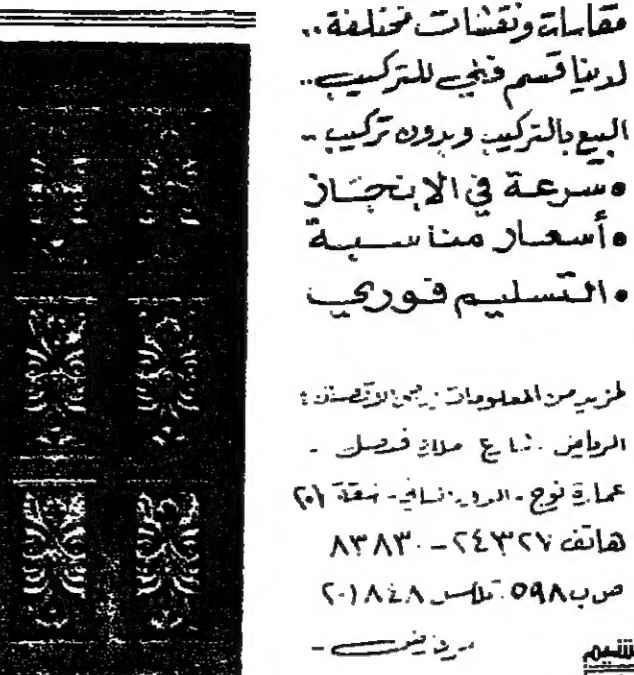 مقاسات ونقشات مختلفة..
لدينا قسم فني للتركيب..
البيع بالتركيب وبدون تركيب -
• سرعة في الانجاز
• أسعار مناسبة
• التسليم فوري
لمزيد من المعلومات يرجى الاتصال:
الرياض . شارع الملك فيصل -
عمارة نوح - الدور الثاني - شقة ٢٠١
هاتف ٢٤٣٢٧ - ٨٣٨٣٠
ص ب ٥٩٨ تلكس ٢٠١٨٤٨